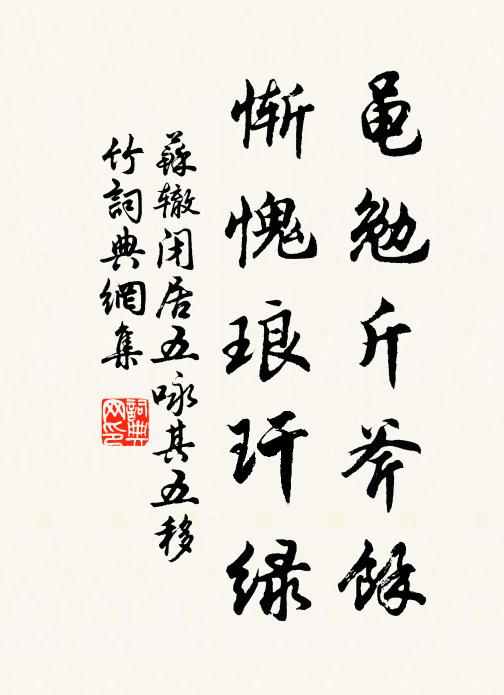 黾勉斤斧馀
惭愧琅玕绿
蘇辙闲居五咏其五移
竹詞典網集
詞典网印